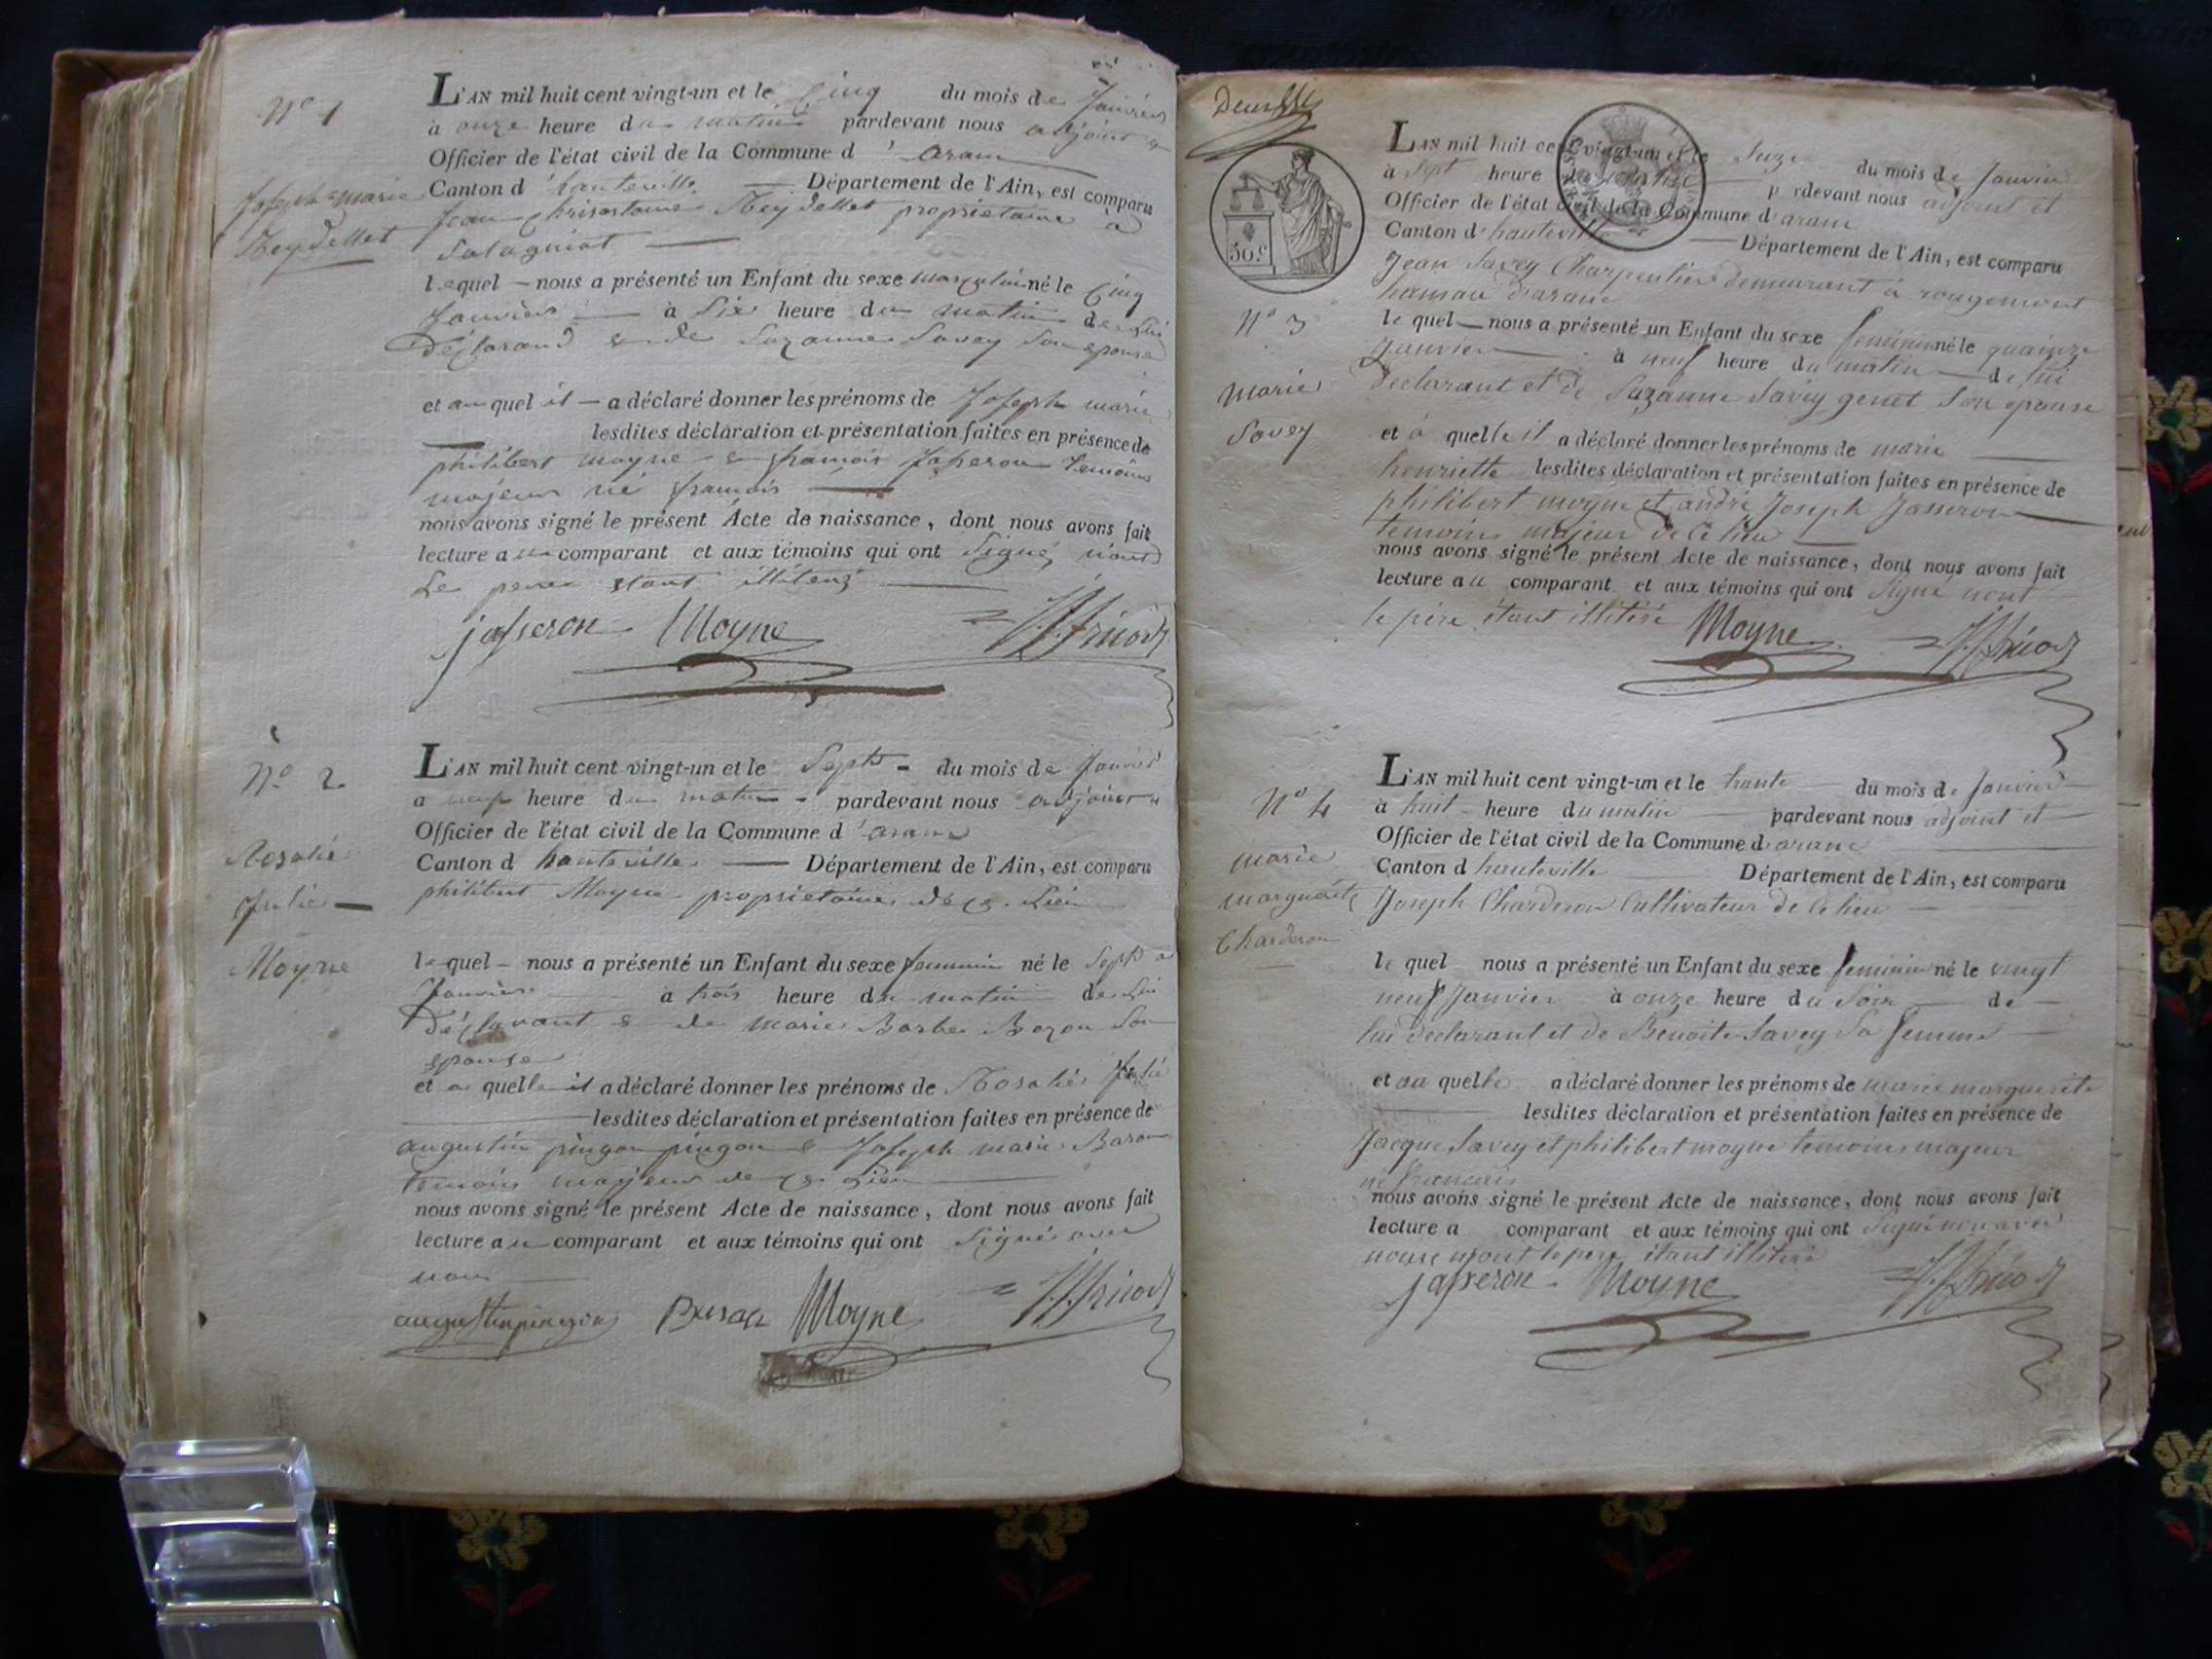 N° 1
L'AN mil huit cent vingt-un et le Cinq du mois de Janvier
à onze heure du matin pardevant nous adjoint &
Officier de l'état civil de la Commune d'aranc
Canton d'hauteville Département de l'Ain, est comparu
Joseph marie
Reydellet
Jean Reydellet propriétaire à
Salagniat
lequel nous a présenté un Enfant du sexe masculin né le Cinq
Janvier à Six heure du matin de Lui
déclarand & de Suzanne Savey Son epouse
et auquel il a déclaré donner les prénoms de Joseph marie
lesdites déclaration et présentation faites en présence de
philibert moyne & francois Jasseron temoins
majeurs né francois
nous avons signé le présent Acte de naissance, dont nous avons fait
lecture au comparant et aux témoins qui ont Signé, non
Le pere etant
jasseron Moyne
N° 2
L'AN mil huit cent vingt-un et le Sept du mois de Janvier
a neuf heure du matin pardevant nous adjoint &
Officier de l'état civil de la Commune d'aranc
Canton d hauteville Département de l'Ain, est comparu
Rosalie
Julie
Moyne
philibert Moyne propriétaire de ce Lieu
lequel nous a présenté un Enfant du sexe feminin né le Sept
Janvier à trois heure du matin de Lui
déclarant & de marie Barbe Bozon Son
epouse
et a quelle il a déclaré donner les prénoms de Rosalie Julie
lesdites déclaration et présentation faites en présence de
augustin pingon pingon & Joseph marie
temoins majeurs de ce Lieu
nous avons signé le présent Acte de naissance, dont nous avons fait
lecture au comparant et aux témoins qui ont Signé avec
nous
augustin pingon Moyne
50.c
L'AN mil huit cent vingt-un et le du mois de Janvier
à Sept heure du pardevant nous adjoint et
Officier de l'état civil de la Commune d'aranc
Canton d'hauteville Département de l'Ain, est comparu
Jean Savey Charpentier demeurant à rougemont
hamau d'aranc
N° 3
marie
Savey
le quel nous a présenté un Enfant du sexe feminin né le quainze
Janvier à neuf heure du matin de lui
declarant et de Suzanne Savey genet Son epouse
et à quelle il a déclaré donner les prénoms de marie
henriette lesdites déclaration et présentation faites en présence de
philibert moyne et andré Joseph Jasseron
temoins majeur de ce lieu
nous avons signé le présent Acte de naissance, dont nous avons fait
lecture au comparant et aux témoins qui ont Signé nont
le père étant illitiré
Moyne
N° 4
L'AN mil huit cent vingt-un et le trante du mois de Janvier
à huit heure du matin pardevant nous adjoint et
Officier de l'état civil de la Commune d'aranc
Canton d hauteville Département de l'Ain, est comparu
marie
marguerite
Charderon
Joseph Charderon Cultivateur de Ce lieu
le quel nous a présenté un Enfant du sexe feminin né le vingt
neuf Janvier à onze heure du Soir de
lui declarant et de Benoite Savey Sa femme
et au quelle a déclaré donner les prénoms de marie marguerite
lesdites déclaration et présentation faites en présence de
Jacque Savey et philibert moyne temoins majeur
né francais
nous avons signé le présent Acte de naissance, dont nous avons fait
lecture a comparant et aux témoins qui ont Signé
le pere étant illitiré
jasseron Moyne